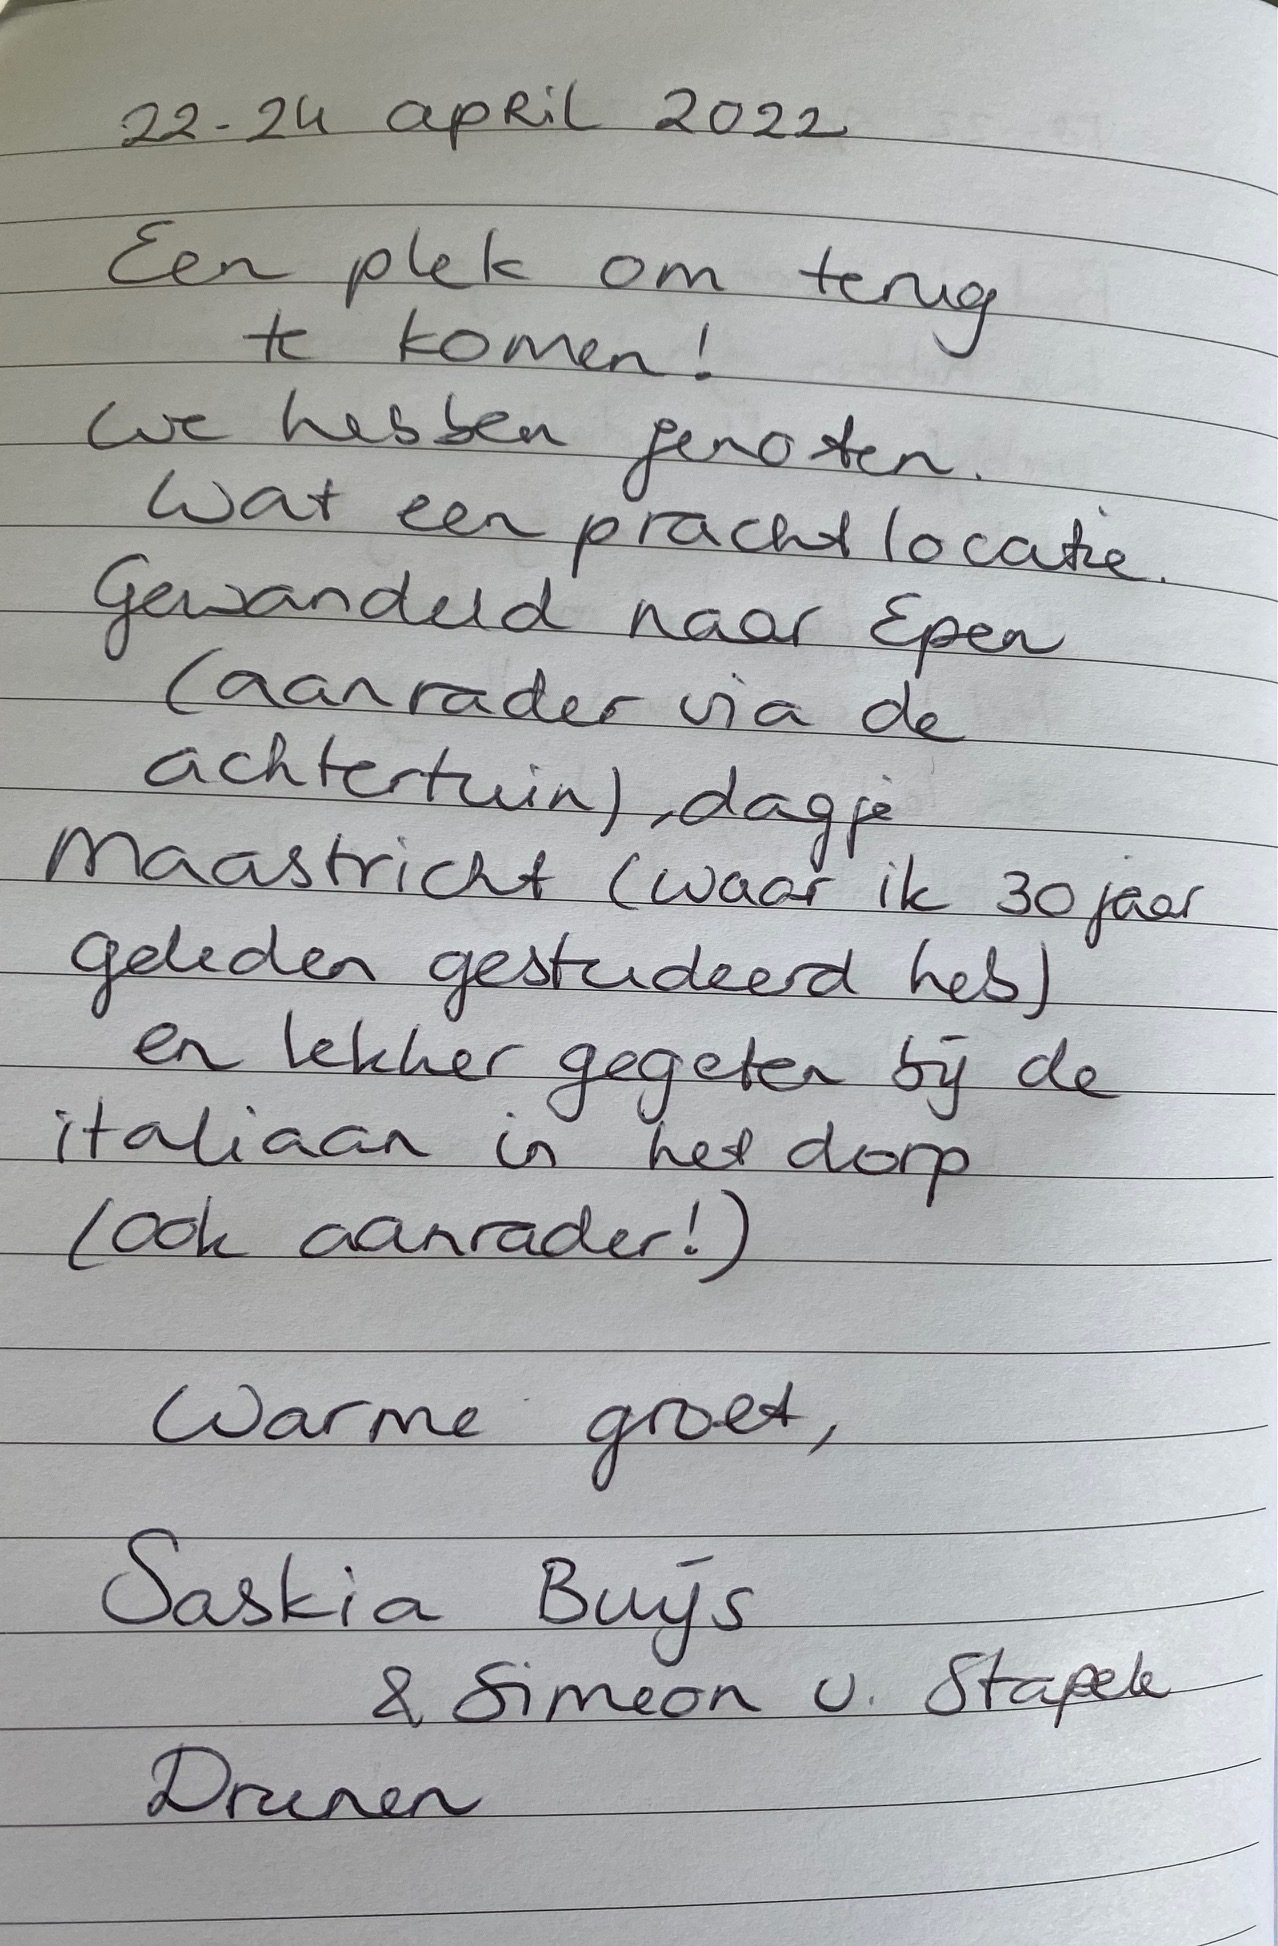 22-24 april 2022
Een plek om terug
te komen!
We hebben genoten.
Wat een pracht locatie.
Gewandeld naar Epen
(aanrader via de
achtertuin), dagje
Maastricht (waar ik 30 jaar
geleden gestudeerd heb)
en lekker gegeten bij de
italiaan in het dorp
(ook aanrader!)
Warme groet,
Saskia Buijs
& Simeon v. Stapele
Drunen